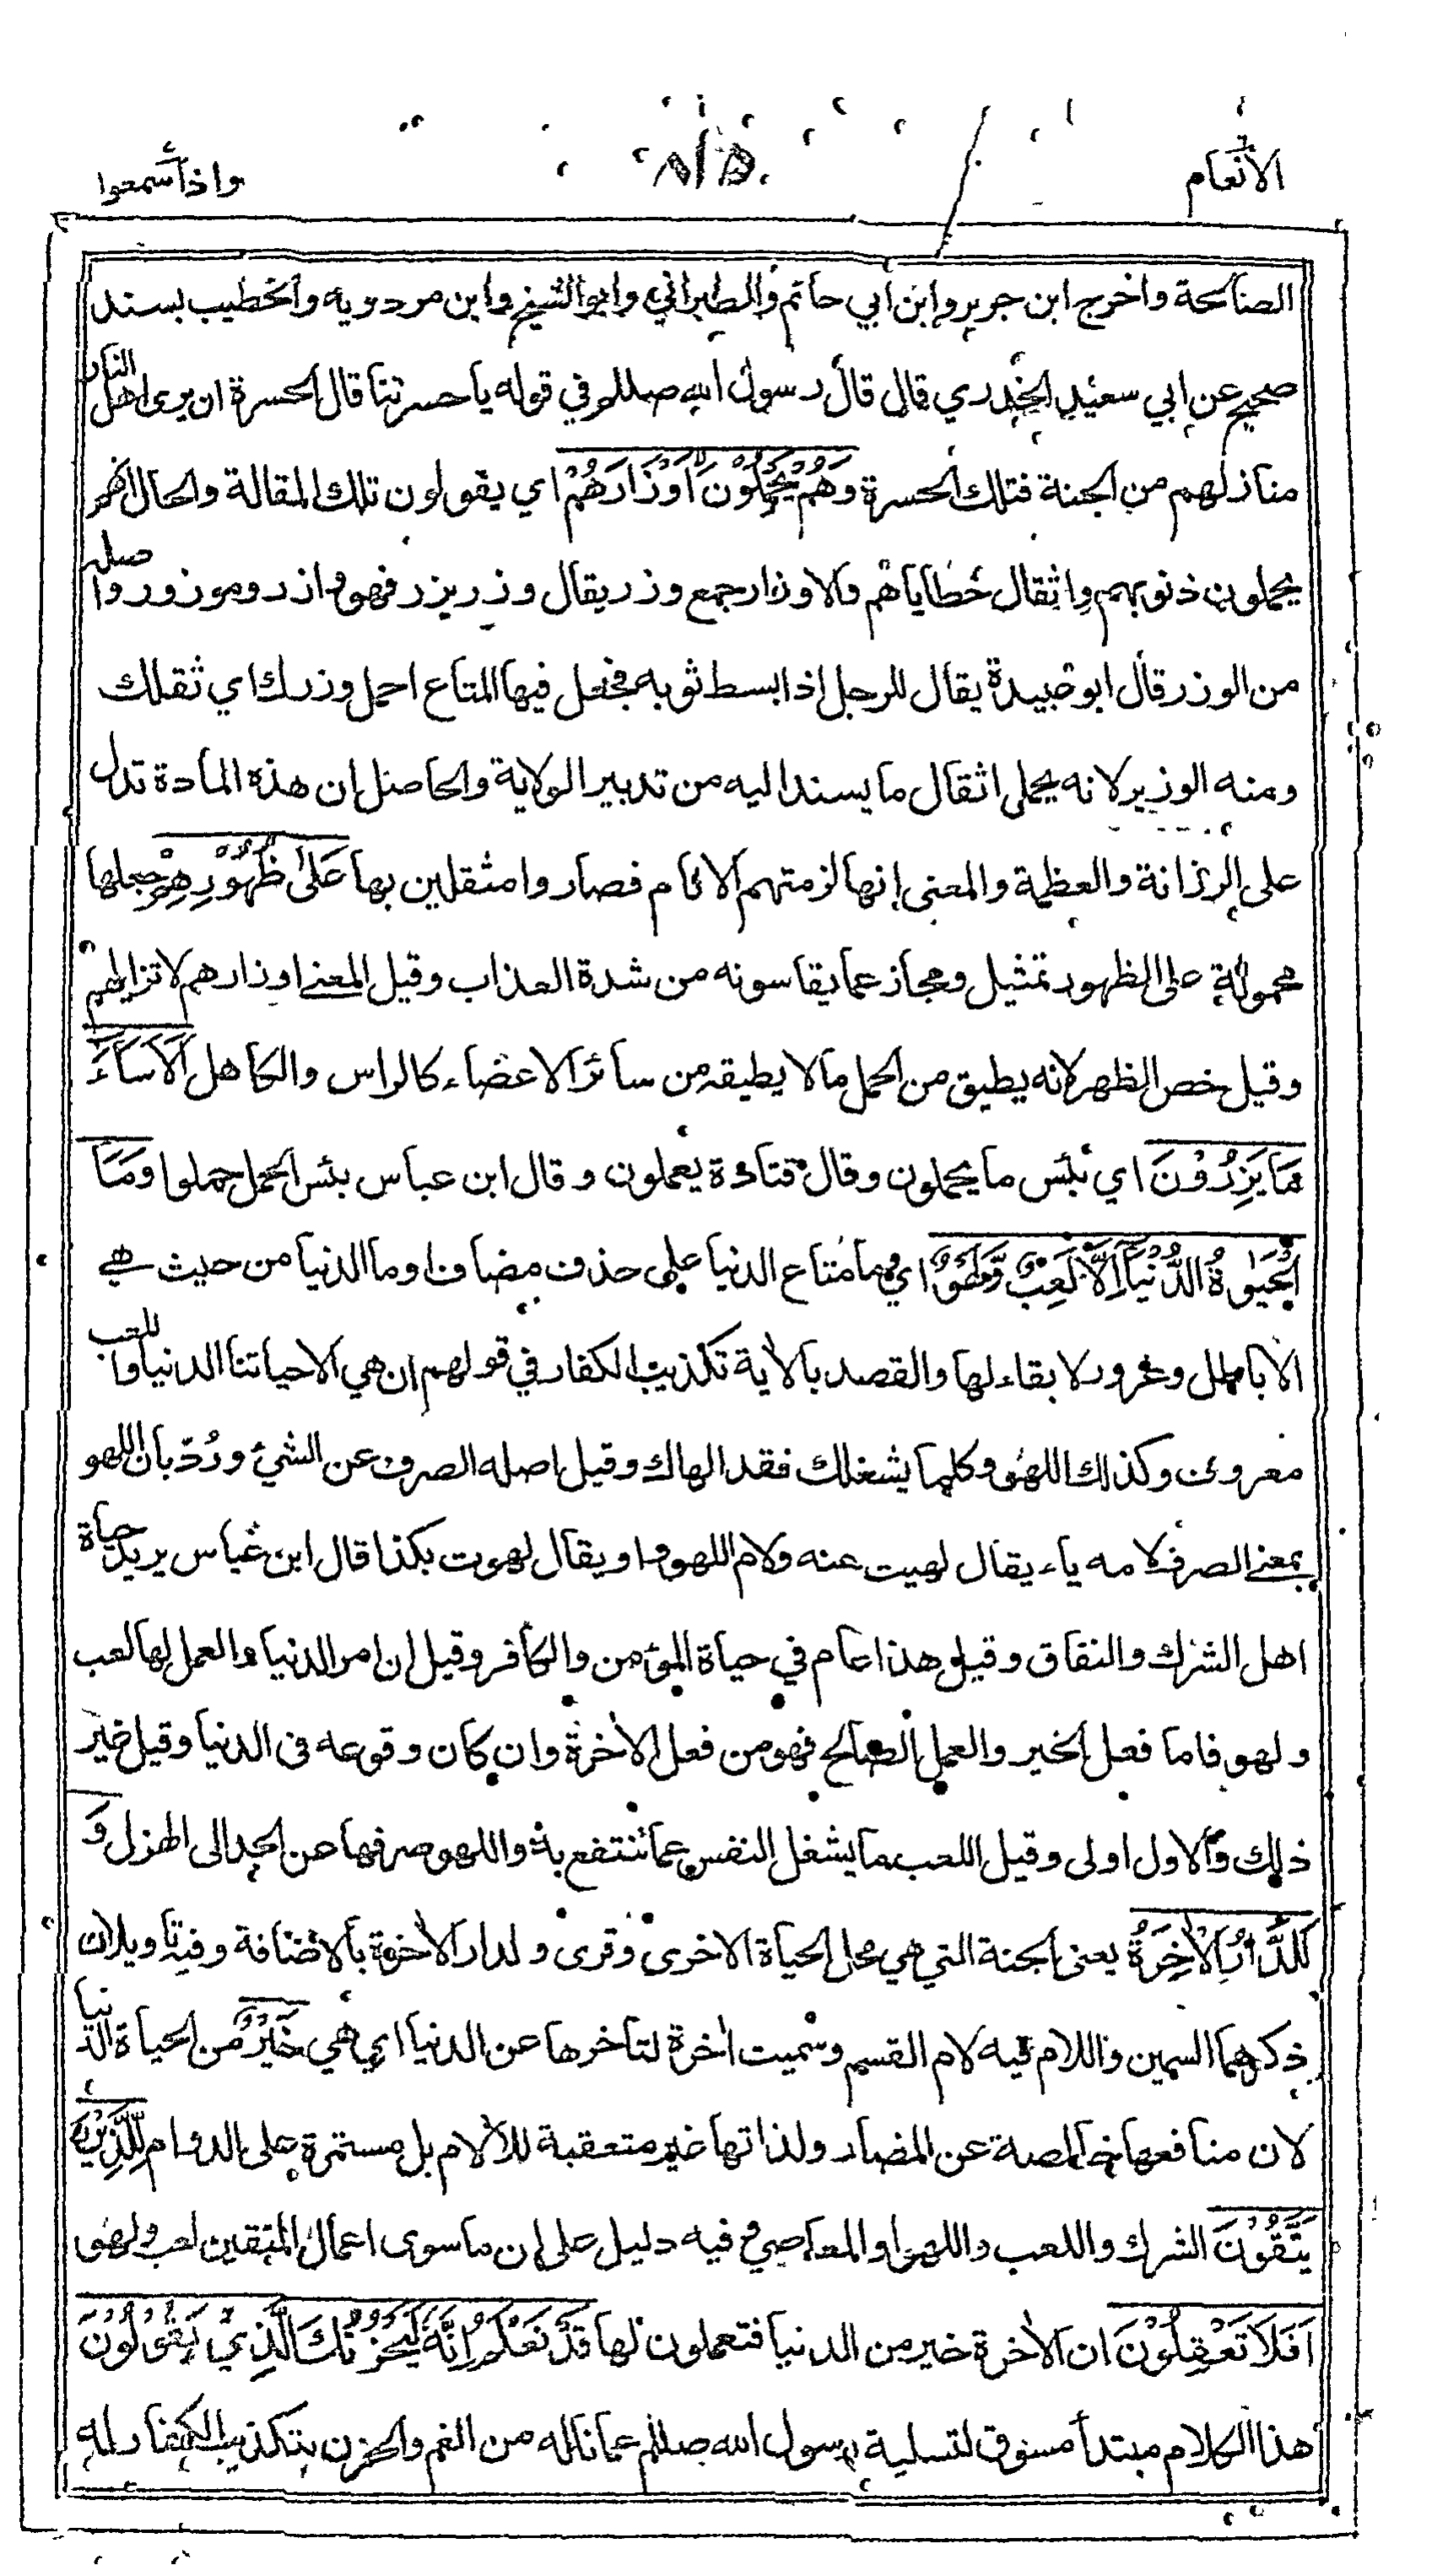 الأنعام
٨١٥
واذا سمعوا
الصالحة واخرج ابن جرير وابن ابي حاتم والطبراني وابو الشيخ وابن مردويه والخطيب بسند
صحيح عن ابي سعيد الخدري قال قال رسول الله صللم في قوله يا حسرتنا قال الحسرة ان يرى اهل النار
منازلهم من الجنة فتلك الحسرة وَهُمْ يَحْمِلُوْنَ اَوْزَارَهُمْ اي يقولون تلك المقالة والحال انهم
يحملون ذنوبهم واثقال خطاياهم والاوزار جمع وزر يقال وزر يزر فهو وازر وموزور واصله
من الوزر قال ابو عبيدة يقال للرجل اذا بسط ثوبه فجعل فيها المتاع احمل وزرك اي ثقلك
ومنه الوزير لانه يحمل اثقال ما يسند اليه من تدبير الولاية والحاصل ان هذه المادة تدل
على الرزانة والعظمة والمعنى انها لزمتهم الاثام فصاروا مثقلين بها عَلىٰ ظُهُوْرِهِمْ وجعلها
محمولة على الظهور تمثيل ومجاز عما يقاسونه من شدة العذاب وقيل المعنى اوزارهم لا تزايلهم
وقيل خص الظهر لانه يطيق من الحمل ما لا يطيقه من سائر الاعضاء كالراس والكاهل اَلَا سَآءَ
مَا يَزِرُوْنَ اي بئس ما يحملون وقال قتادة يعملون وقال ابن عباس بئس الحمل حملوا وَمَا
الْحَيٰوةُ الدُّنْيَآ اِلَّا لَعِبٌ وَّلَهْوٌ اي وما متاع الدنيا على حذف مضاف او ما الدنيا من حيث هي
الا باطل وغرور لا بقاء لها والقصد بالاية تكذيب الكفار في قولهم ان هي الا حياتنا الدنيا واللعب
معروف وكذلك اللهو وكلما يشغلك فقد الهاك وقيل اصله الصرف عن الشيء ورُدّ بان اللهو
بمعنى الصرف لامه ياء يقال لهيت عنه ولام اللهو واو يقال لهوت بكذا قال ابن عباس يريد حياة
اهل الشرك والنفاق وقيل هذا عام في حياة المؤمن والكافر وقيل ان امر الدنيا والعمل لها لعب
ولهو فاما فعل الخير والعمل الصالح فهو من فعل الاخرة وان كان وقوعه في الدنيا وقيل غير
ذلك والاول اولى وقيل اللعب ما يشغل النفس عما تنتفع به واللهو صرفها عن الجد الى الهزل وَ
لَلدَّارُ الْاٰخِرَةُ يعنى الجنة التي هي محل الحياة الاخرى وقرى ولدار الاخرة بالاضافة وفيه تاويلان
ذكرهما السمين واللام فيه لام القسم وسميت اخرة لتاخرها عن الدنيا اي هي خَيْرٌ من الحياة الدنيا
لان منافعها خالصة عن المضار ولذاتها غير متعقبة للالام بل مستمرة على الدوام لِّلَّذِيْنَ
يَتَّقُوْنَ الشرك واللعب واللهو والمعاصي وفيه دليل على ان ما سوى اعمال المتقين لعب ولهو
اَفَلَا تَعْقِلُوْنَ ان الاخرة خير من الدنيا فتعملون لها قَدْ نَعْلَمُ اِنَّهٗ لَيَحْزُنُكَ الَّذِيْ يَقُوْلُوْنَ
هذا الكلام مبتدأ مسوق لتسلية رسول الله صللم عما ناله من الغم والحزن بتكذيب الكفار له